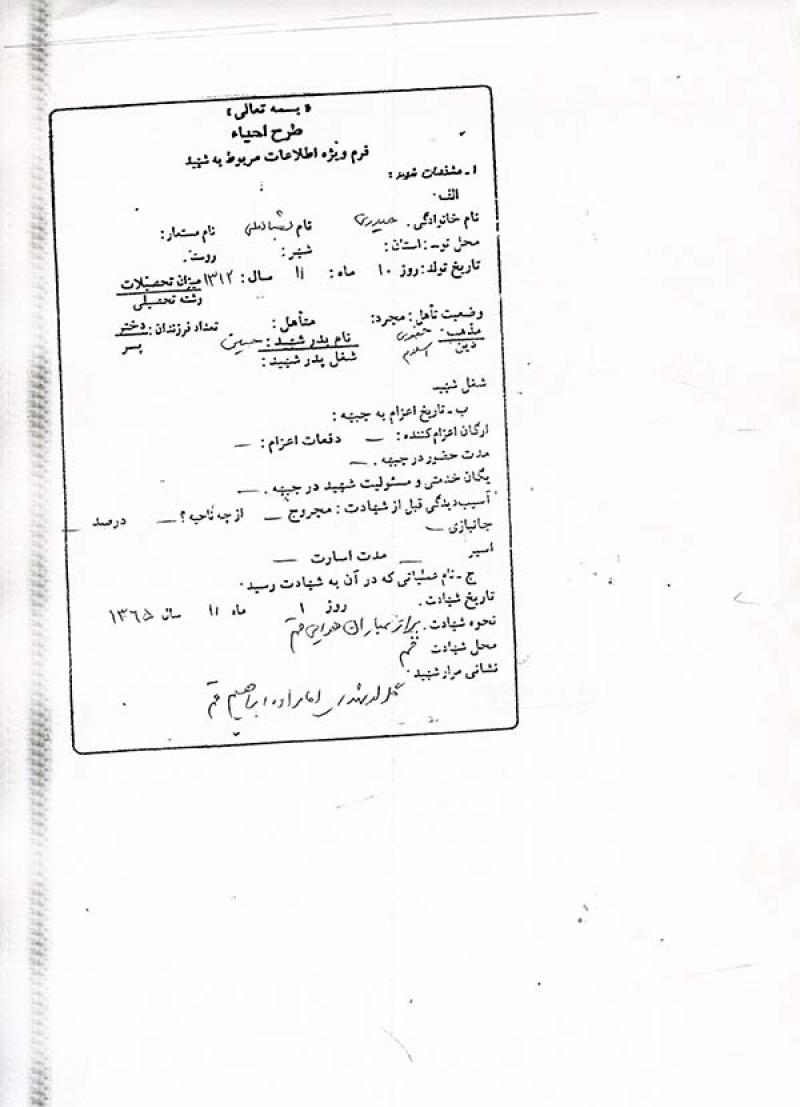 « بسمه تعالی »
طرح احیاء
فرم ویژه اطلاعات مربوط به شهید
۱ ـ مشخصات شهید :
الف ۰
نام خانوادگی . حیدری نام نام مستعار :
محل تولد : استان : شهر : روستا .
تاریخ تولد : روز ۱۰ ماه : ۱۱ سال : ۱۳۱۲ میزان تحصیلات
رشته تحصیلی
وضعیت تأهل : مجرد : متأهل : تعداد فرزندان : دختر
پسر
مذهب جعفری نام پدر شهید : حسین
دین اسلام شغل پدر شهید :
شغل شهید
ب ـ تاریخ اعزام به جبهه :
ارگان اعزام کننده : — دفعات اعزام : —
مدت حضور در جبهه . —
یگان خدمتی و مسئولیت شهید در جبهه . —
آسیب‌دیدگی قبل از شهادت : مجروح — از چه ناحیه ؟ — درصد —
جانبازی —
اسیر — مدت اسارت —
ج ـ نام عملیاتی که در آن به شهادت رسید ۰
تاریخ شهادت . روز ۱ ماه ۱۱ سال ۱۳۶۵
نحوه شهادت . بمباران هوایی قم
محل شهادت قم
نشانی مزار شهید ۰
امامزاده ابراهیم قم